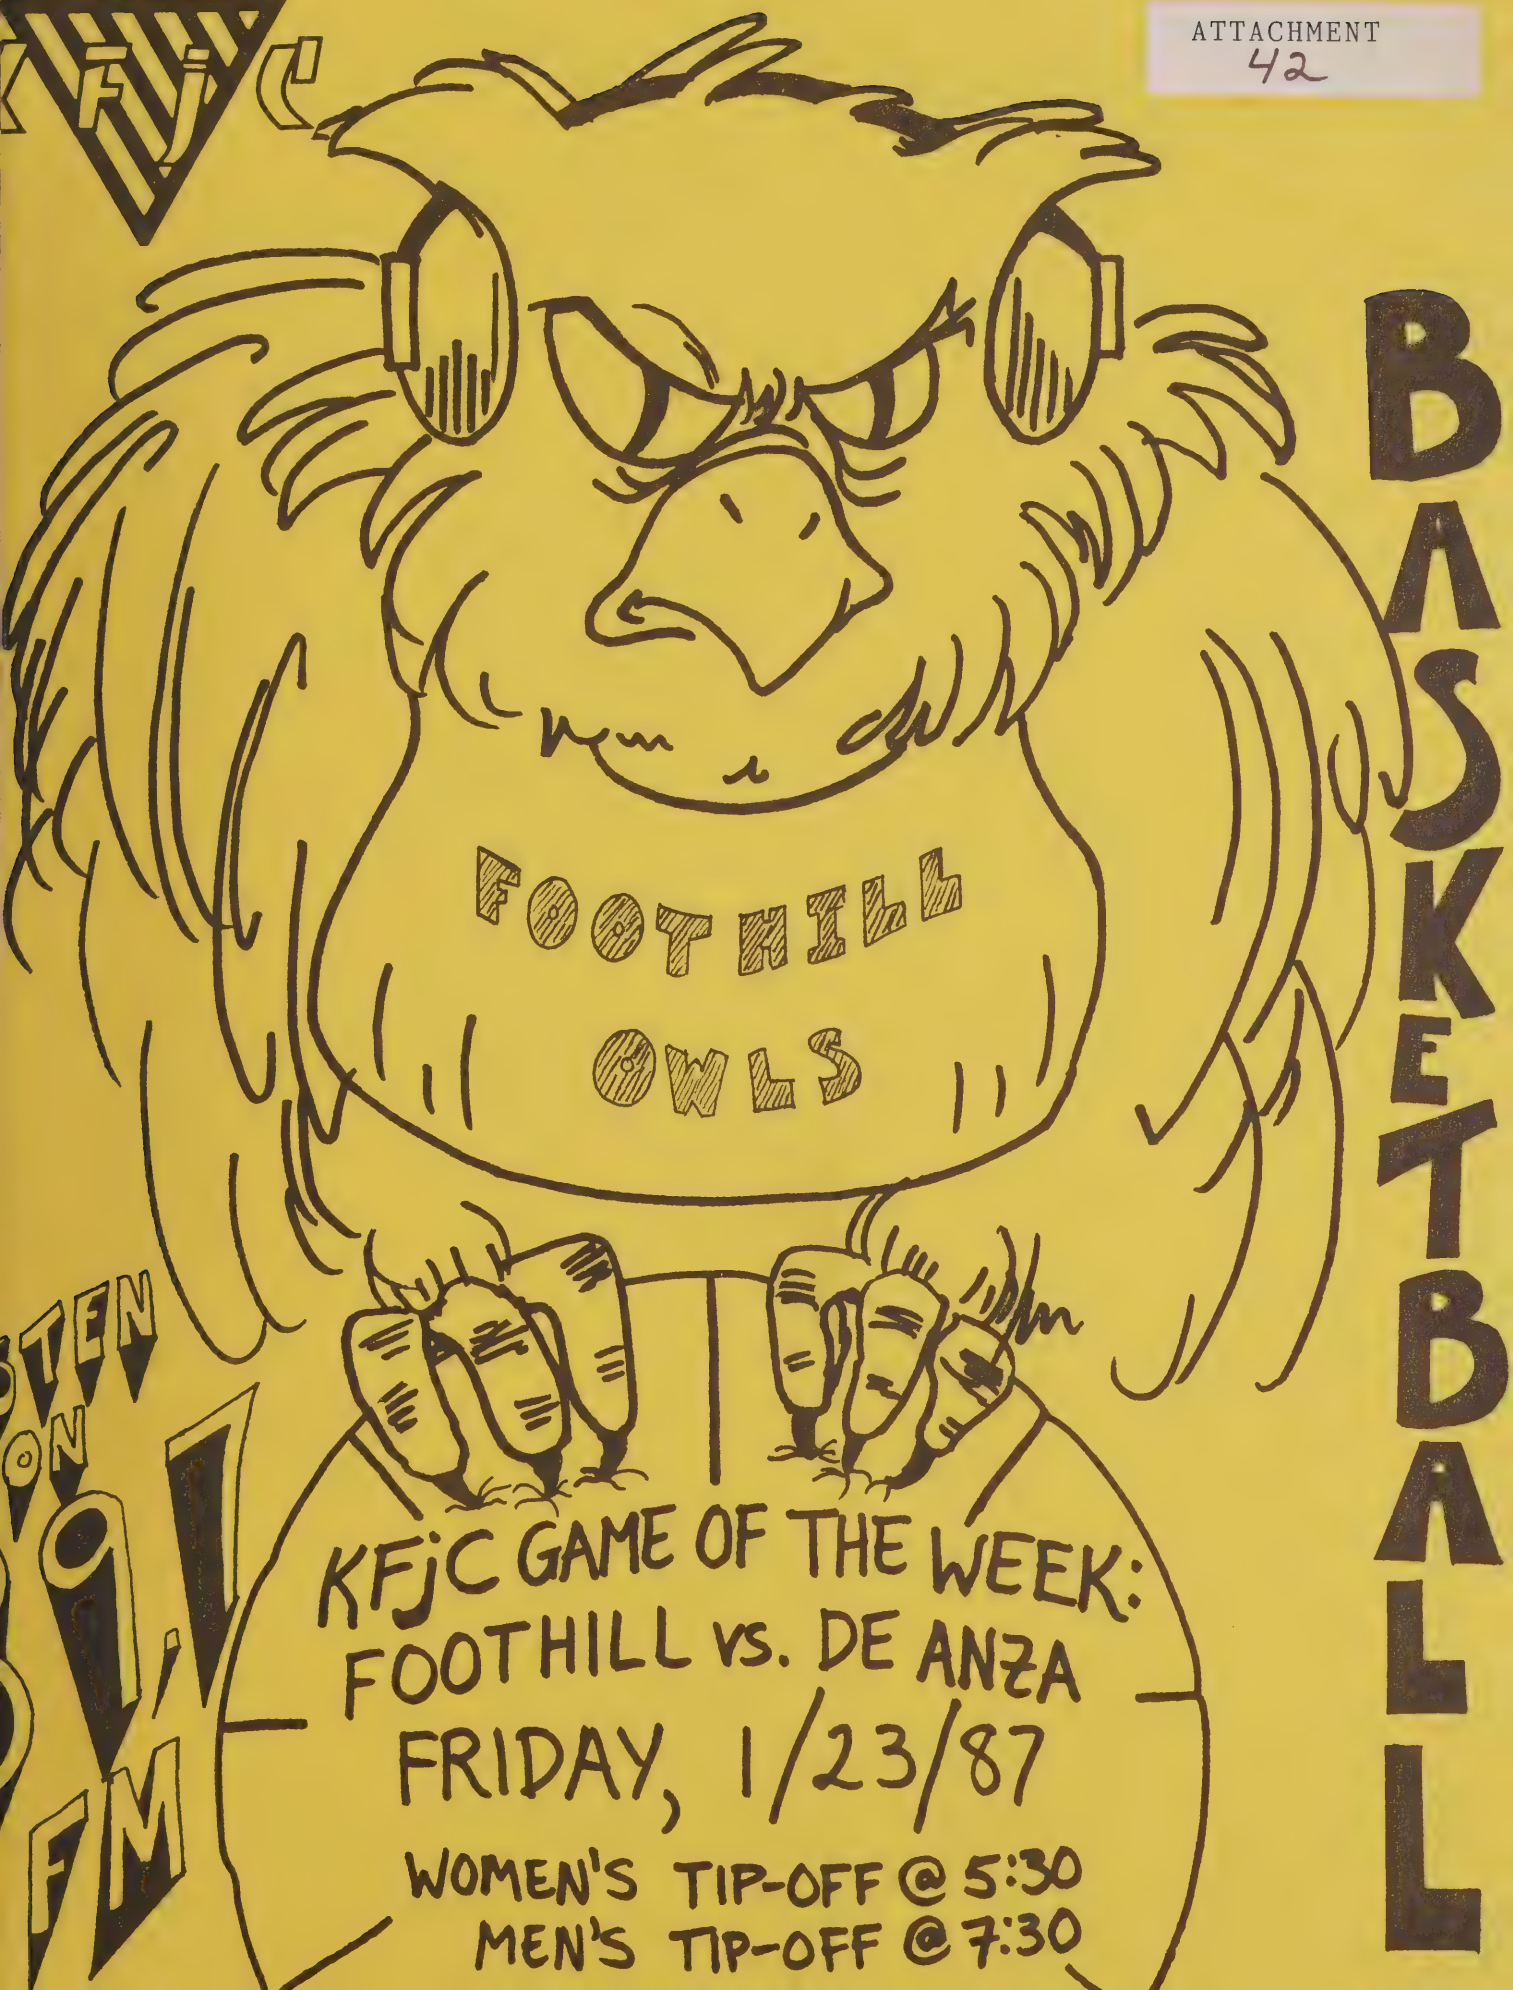 KFjC
ATTACHMENT
42
BASKETBALL
FOOTHILL
OWLS
ON
9.7
FM
KFjC GAME OF THE WEEK:
FOOTHILL vs. DE ANZA
FRIDAY, 1/23/87
WOMEN'S TIP-OFF @ 5:30
MEN'S TIP-OFF @ 7:30